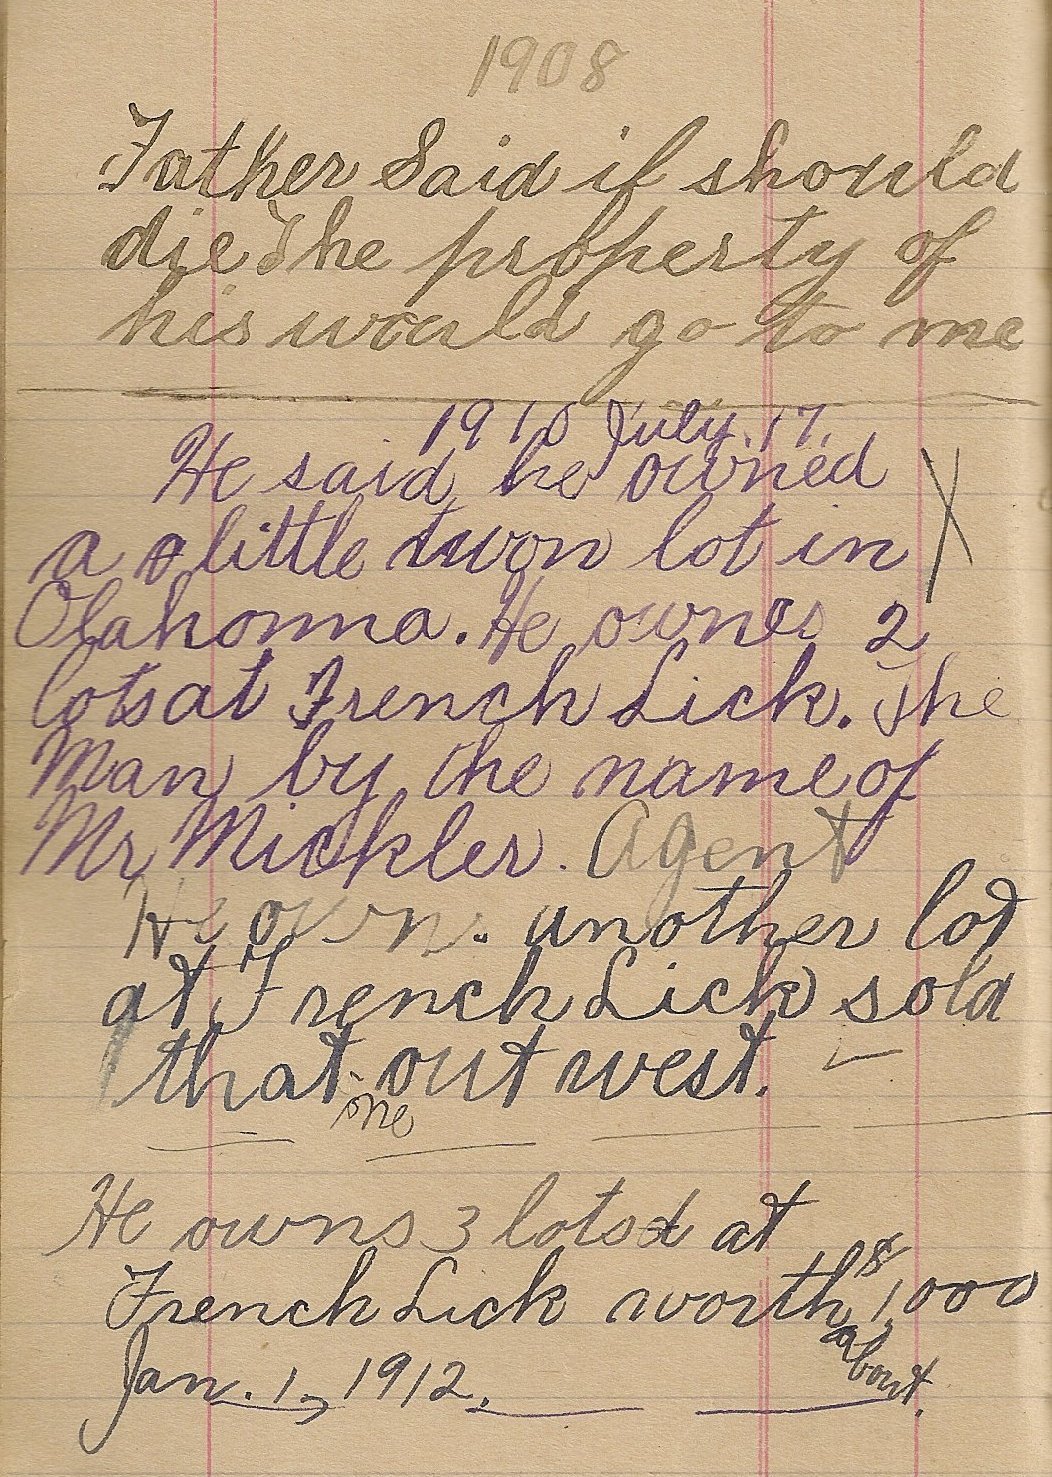 1908
Father Said if should
die The property of
his would go to me
1910 July. 17.
He said he owned
a a little twon lot in
Olahonna. He ownes 2
lots at French Lick. The
Man by the name of
Mr Mickler. Agent
He owns another lot
at French Lick sold
that out west.
me
He owns 3 lots at
French Lick worth $1,000
about.
Jan. 1, 1912.